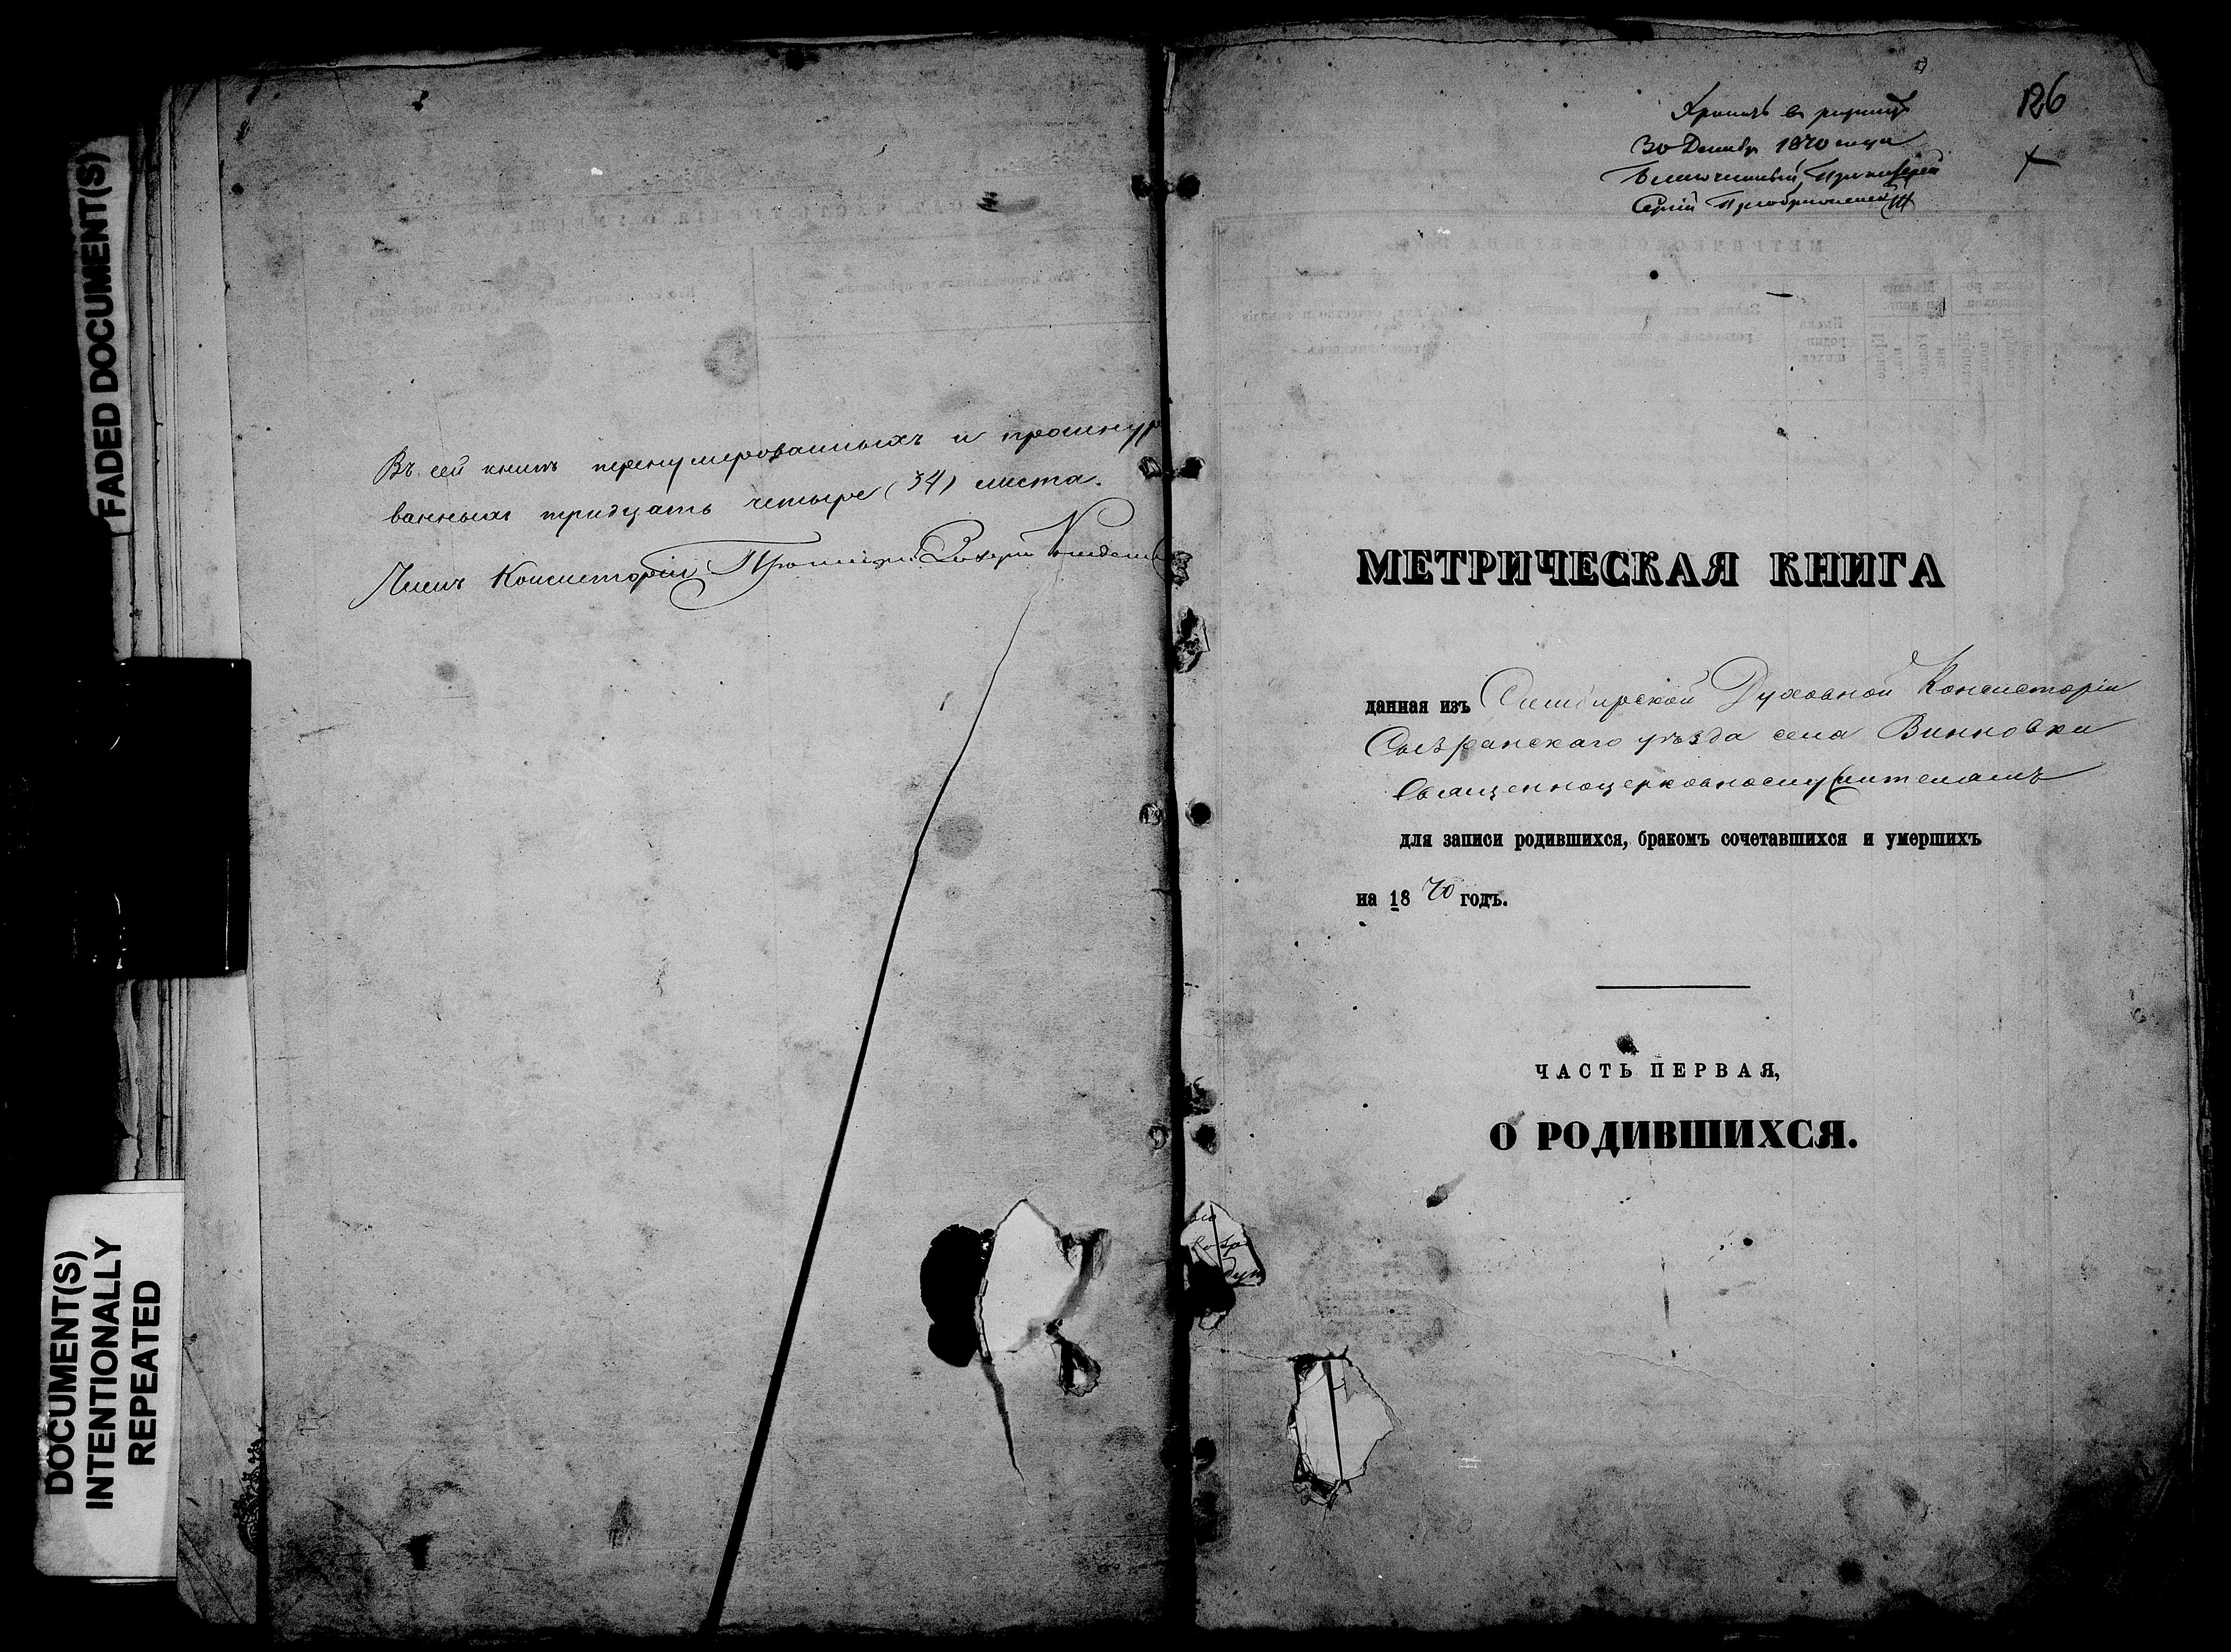 FADED DOCUMENT(S)
DOCUMENT(S)
INTENTIONALLY
REPEATED
Въ сей книгѣ перенумерованныхъ и прошнуро
ванныхъ тридцать четыре (34) листа.
Членъ Консисторіи
126
30 Декабр 1870 года
Благочинный,
Сергій Преображенскій
МЕТРИЧЕСКАЯ КНИГА
данная изъ Симбирской Духовной Консисторіи
Сызранскаго уѣзда села Винновки
Священноцерковнослужителямъ
для записи родившихся, бракомъ сочетавшихся и умершихъ
на 1870 годъ.
ЧАСТЬ ПЕРВАЯ,
О РОДИВШИХСЯ.